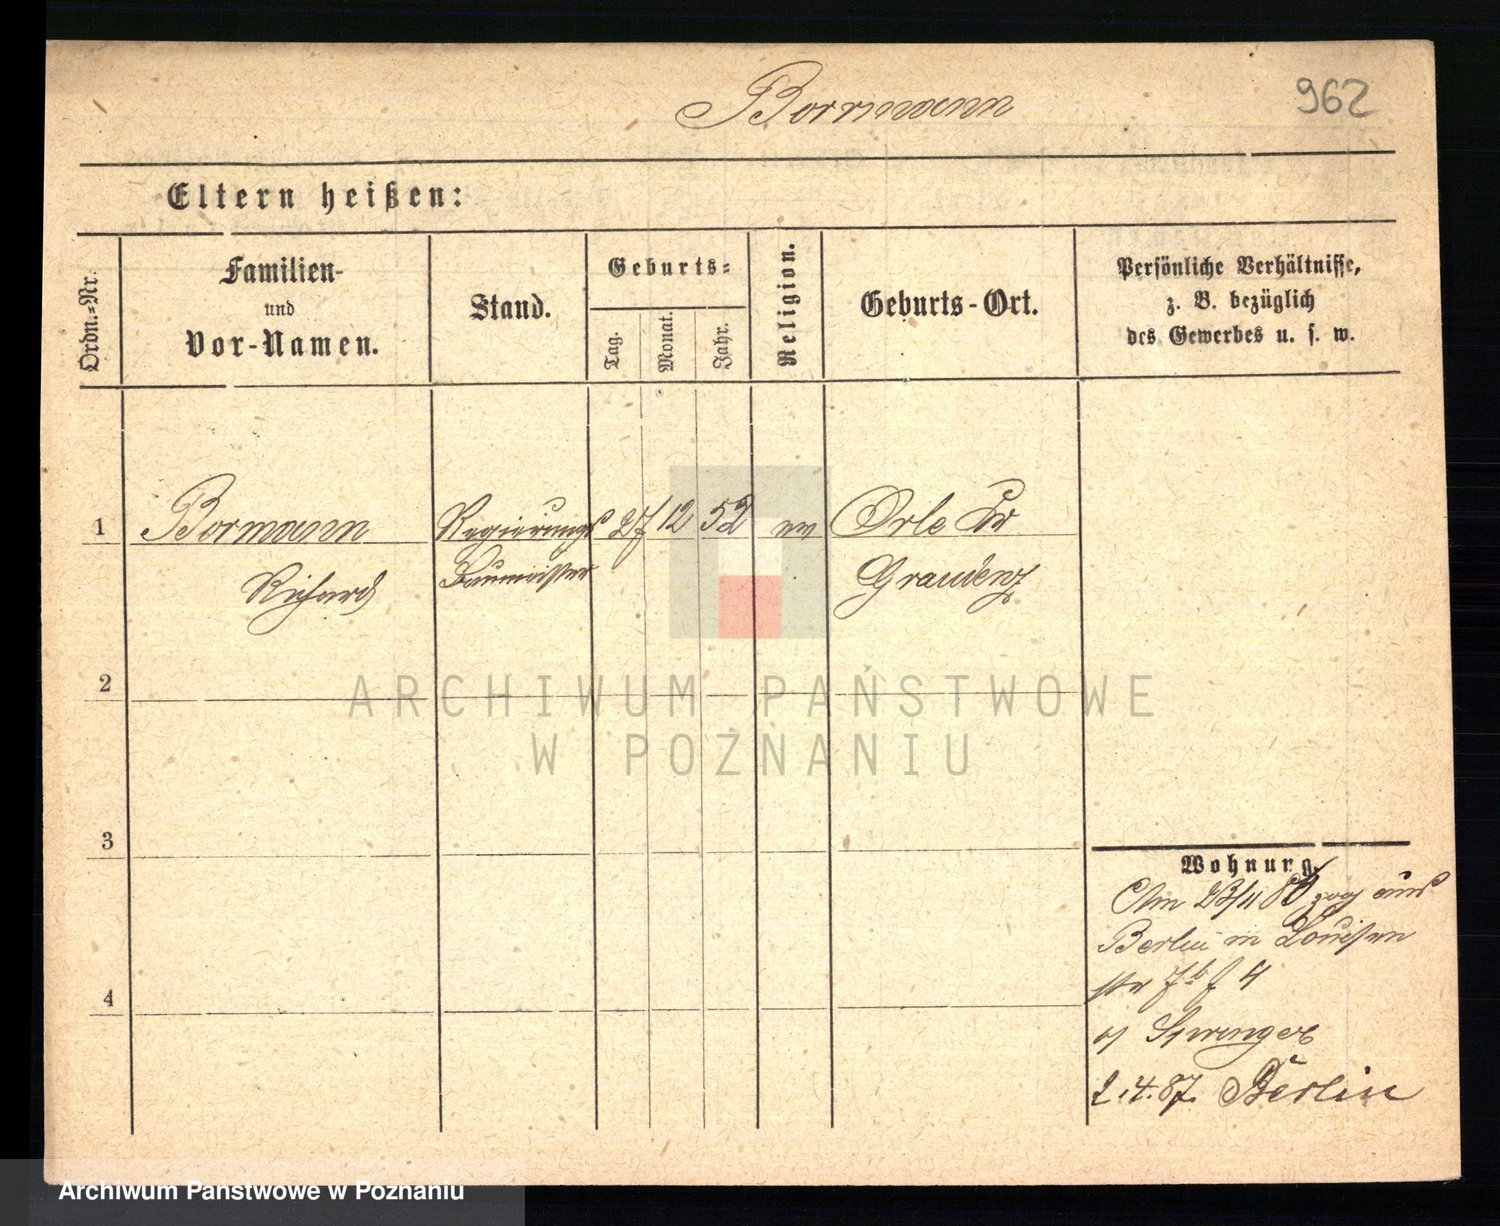 Bormann
962
Eltern heißen:
Ordn.-Nr.
Familien-
und
Vor-Namen.
Stand.
Geburts-
Tag.
Monat.
Jahr.
Religion.
Geburts-Ort.
Persönliche Verhältnisse,
z. B. bezüglich
des Gewerbes u. s. w.
1
Bormann
Richard
Regierungs
Baumeister
27
12
52
ev
Orle Kr
Graudenz
2
ARCHIWUM PAŃSTWOWE
W POZNANIU
3
Wohnung.
Am 23/11 86 zog aus
Berlin in Louisen
str 7b f 4
Springer
4
2.4.87. Berlin
Archiwum Państwowe w Poznaniu